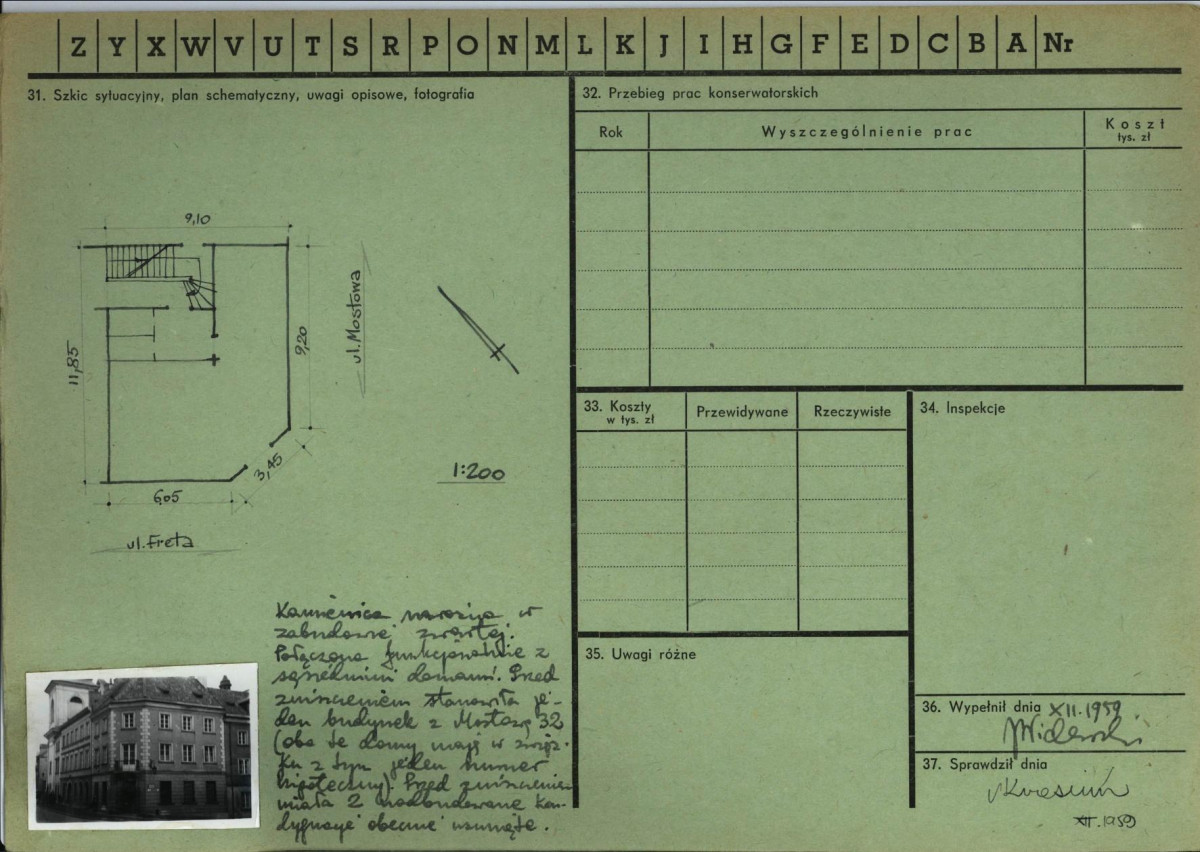 Z Y X W V U T S R P O N M L K J I H G F E D C B A Nr
31. Szkic sytuacyjny, plan schematyczny, uwagi opisowe, fotografia
9,10
11,85
9,20
ul. Mostowa
3,45
6,05
ul. Freta
1:200
Kamienica narożna w
zabudowie zwartej.
Połączona funkcjonalnie z
sąsiednimi domami. Przed
zniszczeniem stanowiła je-
den budynek z Mostową 32
(oba te domy mają w związ-
ku z tym jeden numer
hipoteczny). Przed zniszczeniem
miała 2 nadbudowane kon-
dygnacje obecnie usunięte.
32. Przebieg prac konserwatorskich
Rok Wyszczególnienie prac Koszt
tys. zł
33. Koszty
w tys. zł
Przewidywane Rzeczywiste
34. Inspekcje
35. Uwagi różne
36. Wypełnił dnia XII.1959
37. Sprawdził dnia
XII.1959